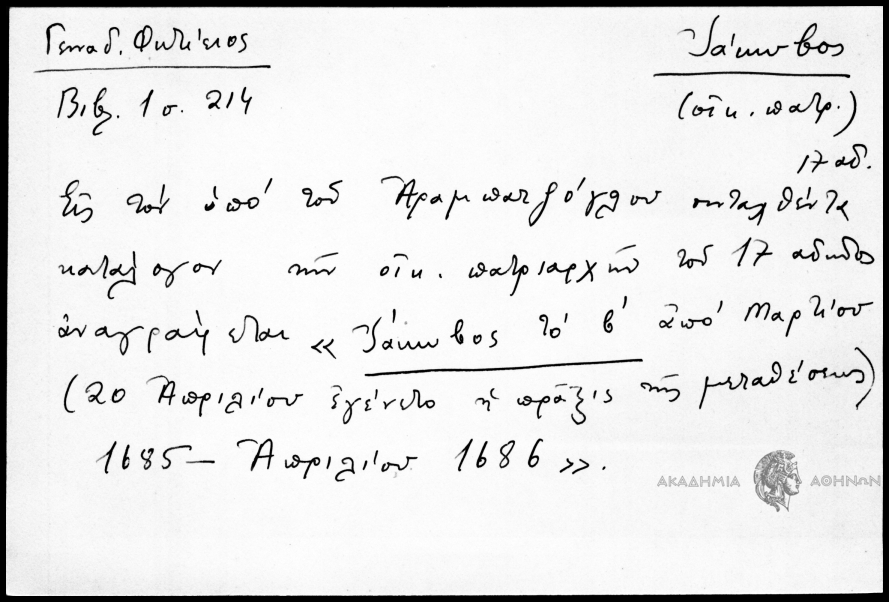 Γενναδ. Φωτίειος
Ἰάκωβος
Βιβλ. 1 σ. 214
(οἰκ. πατρ.)
17 αἰ.
Εἰς τὸν ὑπὸ τοῦ Ἀραμπατζόγλου συνταχθέντα
κατάλογον τῶν οἰκ. πατριαρχῶν τοῦ 17 αἰῶνος
ἀναγράφεται « Ἰάκωβος τὸ β' ἀπὸ Μαρτίου
(20 Ἀπριλίου ἐγένετο ἡ πρᾶξις τῆς μεταθέσεως)
1685 – Ἀπριλίου 1686 ».
ΑΚΑΔΗΜΙΑ ΑΘΗΝΩΝ